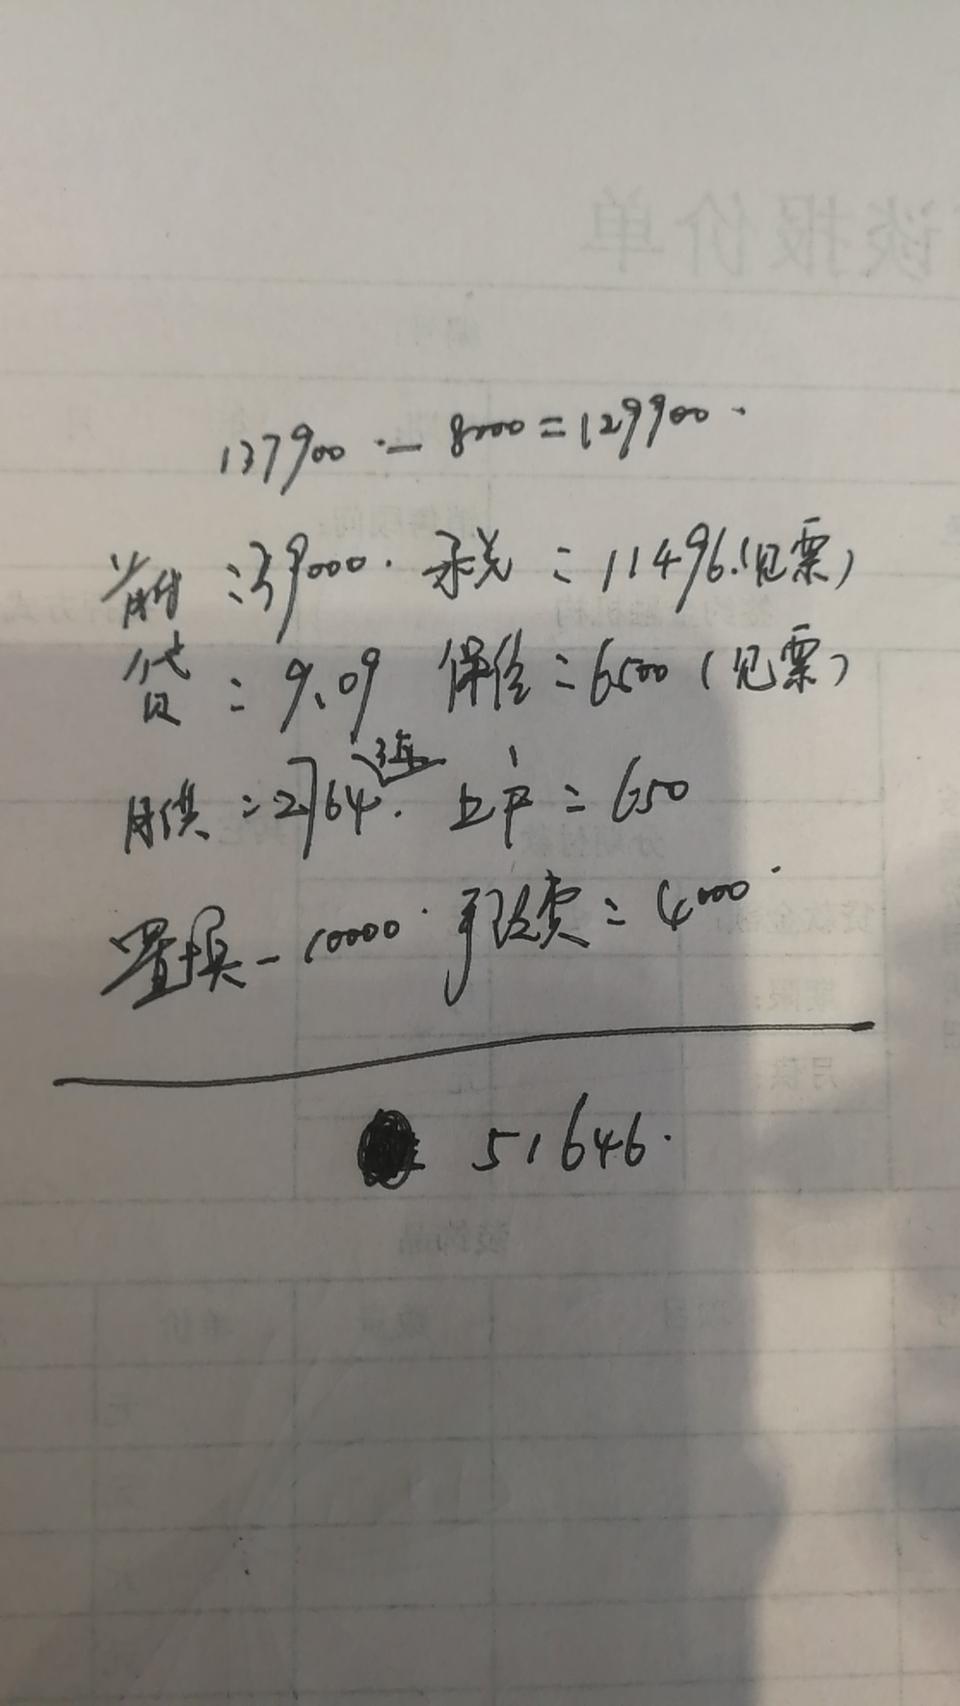 谈报价单
137900.-8000=129900.
首付:39000. 购税=11496.(见票)
贷=9.09 保险=6500(见票)
月供=2764. 3年 上户=650
置换-10000. 手续费=4000.
51646.